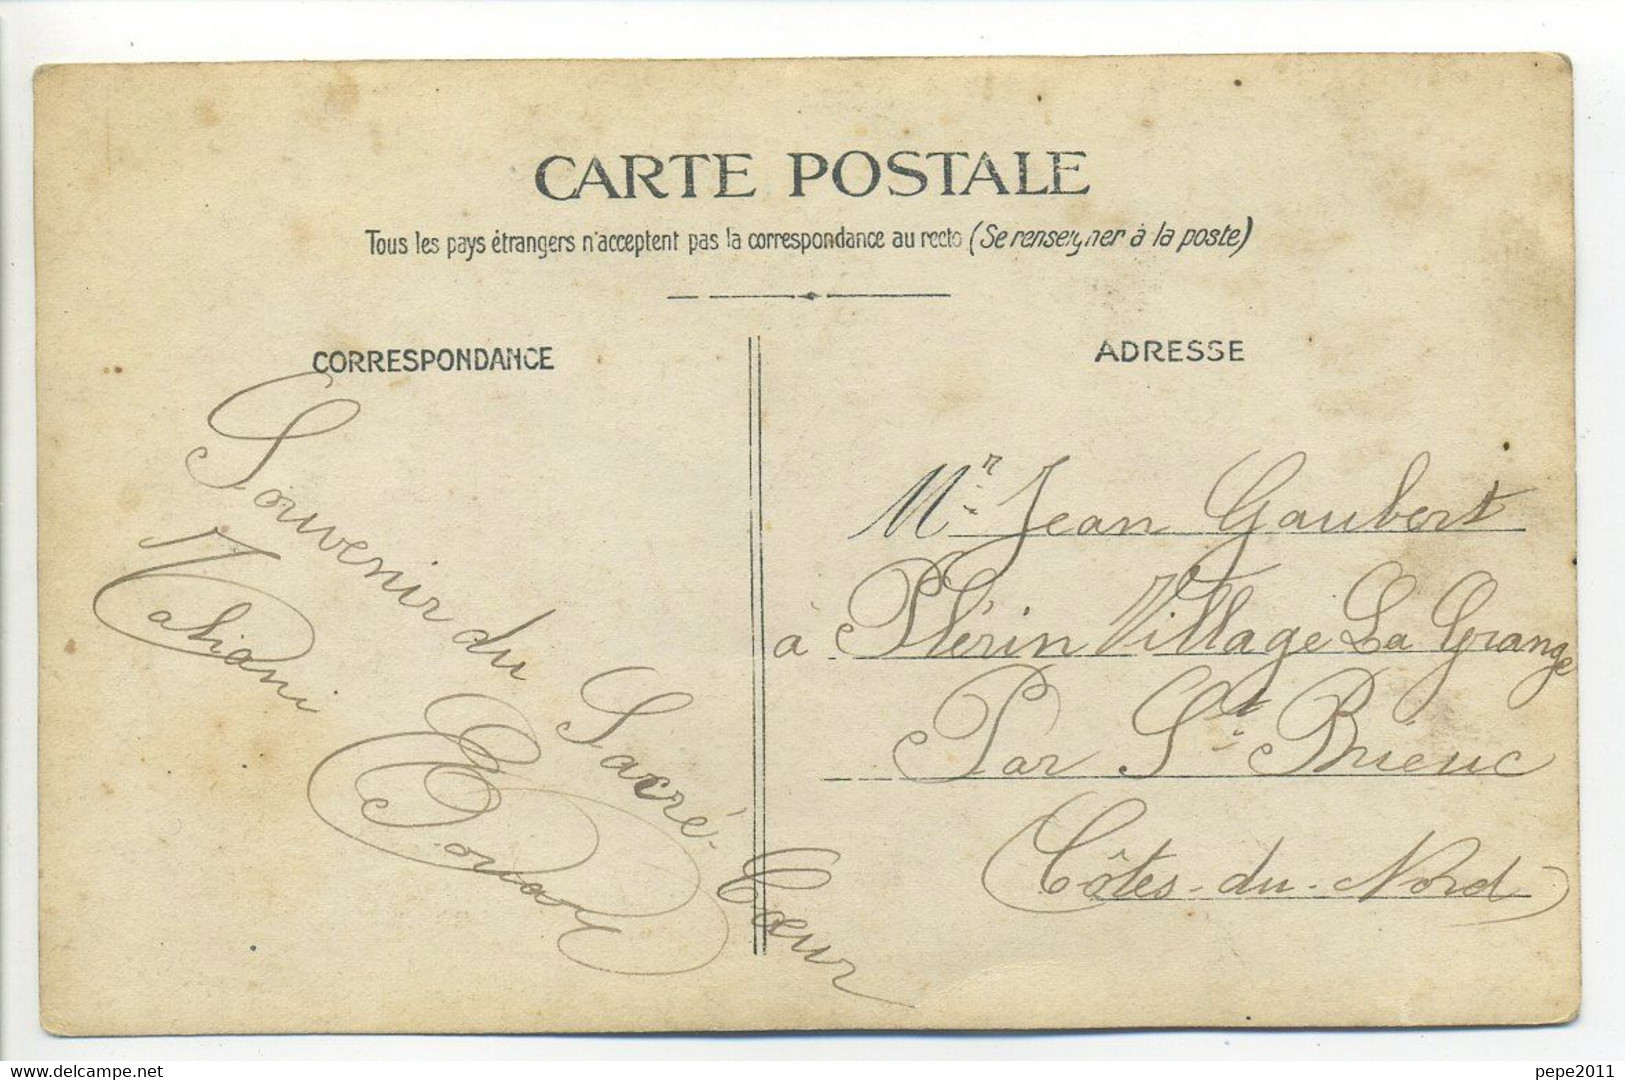 CARTE POSTALE
Tous les pays étrangers n'acceptent pas la correspondance au recto (Se renseigner à la poste)
CORRESPONDANCE
ADRESSE
Souvenir du Sacré-Cœur
Mr. Jean Gaubert
à Plérin Village La Grange
Par St. Brieuc
Côtes-du-Nord
delcampe.net
pepe2011